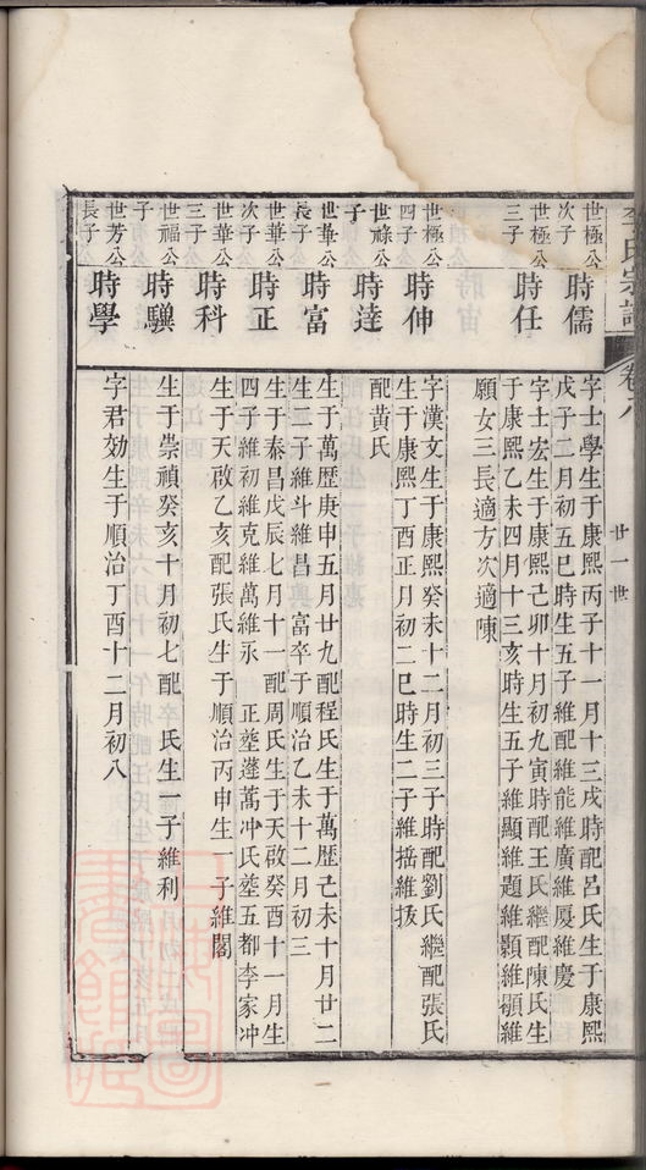 李氏宗譜
卷八
廿一世
世極公
次子
時儒
字士學生于康熙丙子十一月十三戌時配呂氏生于康熙
戊子二月初五巳時生五子維配維能維廣維厦維慶
世極公
三子
時任
字士宏生于康熙己卯十月初九寅時配王氏繼配陳氏生
于康熙乙未四月十三亥時生五子維顯維題維顥維頴維
願女三長適方次適陳
世極公
四子
時伸
字漢文生于康熙癸未十二月初三子時配劉氏繼配張氏
生于康熙丁酉正月初二巳時生二子維掂維扳
世祿公
子
時逹
配黄氏
世華公
長子
時富
生于萬歷庚申五月廿九配程氏生于萬歷己未十月廿二
生二子維斗維昌 富卒于順治乙未十二月初三
世華公
次子
時正
生于泰昌戊辰七月十一配周氏生于天啟癸酉十一月生
四子維初維克維萬維永 正塟蓬萬冲氏塟五都李家冲
世華公
三子
時科
生于天啟乙亥配張氏生于順治丙申生一子維閣
世福公
子
時驥
生于崇禎癸亥十月初七配 氏生一子維利
世芳公
長子
時學
字君効生于順治丁酉十二月初八